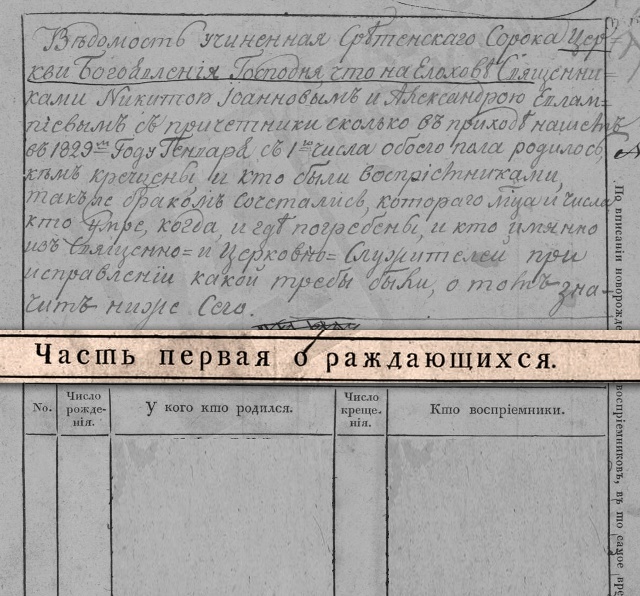 Вѣдомость учиненная Срѣтенскаго Сорока Цер=
кви Богоявленiя Господня, что на Елоховѣ Священни=
ками Никитою Iоанновымъ и Александрою Евлам=
пiевымъ съ причетники сколько въ приходѣ нашемъ
въ 1829мъ Году Генваря съ 1го числа обоего пола родилось,
кѣмъ крещены и кто были воспрiемниками,
также бракомъ сочетались, котораго мца и числа
кто умре, когда, и гдѣ погребены, и кто имянно
изъ Священно= и Церковно= Служителей при
исправленiи какой требы были, о томъ зна=
читъ ниже Сего.
Часть первая о раждающихся.
No.
Число
рожде-
нiя.
У кого кто родился.
Число
креще-
нiя.
Кто воспрiемники.
По вписанiи новорожде
воспрiемниковъ, въ то самое вре